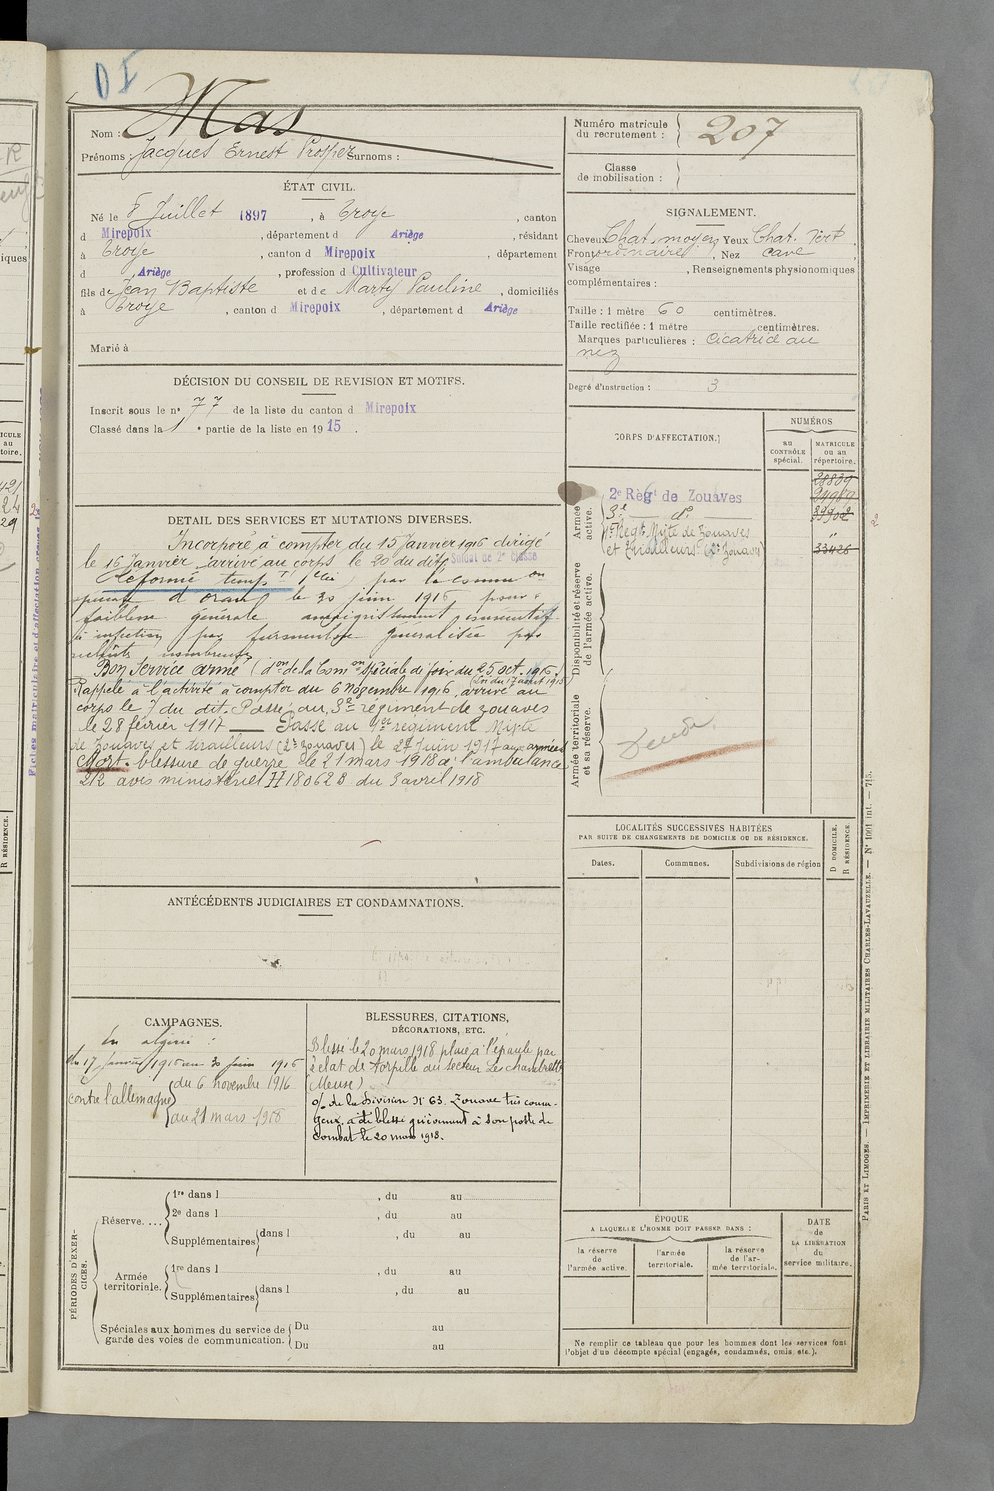 D I
Nom : Mas
Prénoms : Jacques Ernest Prosper Surnoms :
Numéro matricule
du recrutement : 207
Classe
de mobilisation :
ÉTAT CIVIL.
Né le 8 Juillet 1897, à Troye, canton
d Mirepoix, département d Ariège, résidant
à Troye, canton d Mirepoix, département
d Ariège, profession d Cultivateur
fils de Jean Baptiste et de Marty Pauline, domiciliés
à Troye, canton d Mirepoix, département d Ariège
Marié à
SIGNALEMENT.
Cheveux Chat. moyens Yeux Chat. vert
Front ordinaire, Nez cave
Visage , Renseignements physionomiques
complémentaires :
Taille : 1 mètre 60 centimètres.
Taille rectifiée : 1 mètre centimètres.
Marques particulières : Cicatrice au
nez
Degré d'instruction : 3
DÉCISION DU CONSEIL DE REVISION ET MOTIFS.
Inscrit sous le n° 77 de la liste du canton d Mirepoix
Classé dans la 1 e partie de la liste en 1915.
CORPS D'AFFECTATION.
NUMÉROS
AU CONTRÔLE SPÉCIAL.
MATRICULE OU AU RÉPERTOIRE.
Armée active.
2e Régt de Zouaves
3e d°
4e Regt Mixte de Zouaves
et Tirailleurs (2e Zouaves)
33426
Disponibilité et réserve de l'armée active.
Armée territoriale et sa réserve.
DETAIL DES SERVICES ET MUTATIONS DIVERSES.
Incorporé à compter du 15 Janvier 1916 dirigé
le 16 Janvier, arrivé au corps le 20 du dit, Soldat de 2e classe
Réformé temp. par la Comm on
spéciale d'oran le 30 juin 1916, pour :
faiblesse générale amaigrissement, consécutif
à infection par furonculose généralisée
Bon Service armé (d on de la Com on spéciale de foix du 25 oct. 1916.)
(Loi du 17 août 1915)
Rappelé à l'activité à compter du 6 novembre 1916, arrivé au
corps le 7 du dit. Passé au 3e régiment de zouaves
le 28 février 1917 — Passé au 4e régiment Mixte
de zouaves et tirailleurs (2e zouaves) le 28 Juin 1917 aux armées
Mort. blessure de guerre le 21 mars 1918 à l'ambulance
2/2 avis ministériel H 18062 B du 3 avril 1918
LOCALITÉS SUCCESSIVES HABITÉES
PAR SUITE DE CHANGEMENTS DE DOMICILE OU DE RÉSIDENCE.
Dates. Communes. Subdivisions de région
D DOMICILE.
R RÉSIDENCE.
ANTÉCÉDENTS JUDICIAIRES ET CONDAMNATIONS.
CAMPAGNES.
En algérie :
du 17 Janvier 1916 au 30 Juin 1916
contre l'allemagne
du 6 novembre 1916
au 21 mars 1918
BLESSURES, CITATIONS,
DÉCORATIONS, ETC.
Blessé le 20 mars 1918 plaie à l'épaule par
éclat de torpille au secteur Les chambrettes
(Meuse)
O/ de la Division N° 63. Zouave très coura-
geux, a été blessé grièvement à son poste de
combat le 20 mars 1918.
PÉRIODES D'EXERCICES.
Réserve....
1re dans l , du au
2e dans l , du au
Supplémentaires dans l , du au
Armée
territoriale.
1re dans l , du au
Supplémentaires dans l , du au
Spéciales aux hommes du service de
garde des voies de communication.
Du au
Du au
ÉPOQUE
A LAQUELLE L'HOMME DOIT PASSER DANS :
la réserve de l'armée active.
l'armée territoriale.
la réserve de l'armée territoriale.
DATE
de
LA LIBÉRATION
du
service militaire.
Ne remplir ce tableau que pour les hommes dont les services font
l'objet d'un décompte spécial (engagés, condamnés, omis, etc.).
PARIS ET LIMOGES. — IMPRIMERIE ET LIBRAIRIE MILITAIRES CHARLES-LAVAUZELLE. — N° 1001 int. — 715.